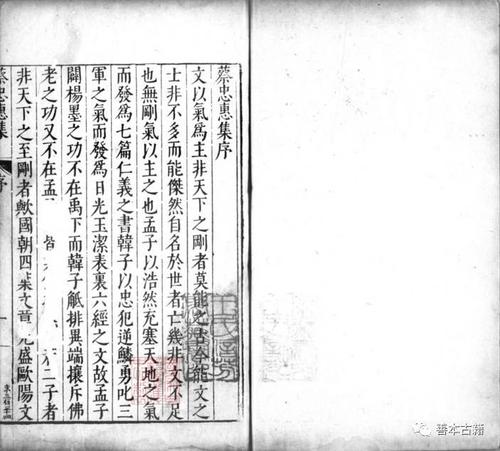 蔡忠惠集序
文以氣爲主非天下之剛者莫能之古今能文之
士非不多而能傑然自名於世者亡幾非文不足
也無剛氣以主之也孟子以浩然充塞天地之氣
而發爲七篇仁義之書韓子以忠犯逆鱗勇叱三
軍之氣而發爲日光玉潔表裏六經之文故孟子
闢楊墨之功不在禹下而韓子觝排異端攘斥佛
老之功又不在孟二子者
非天下之至剛者歟國朝四葉文章尤盛歐陽文
蔡忠惠集 序
善本古籍